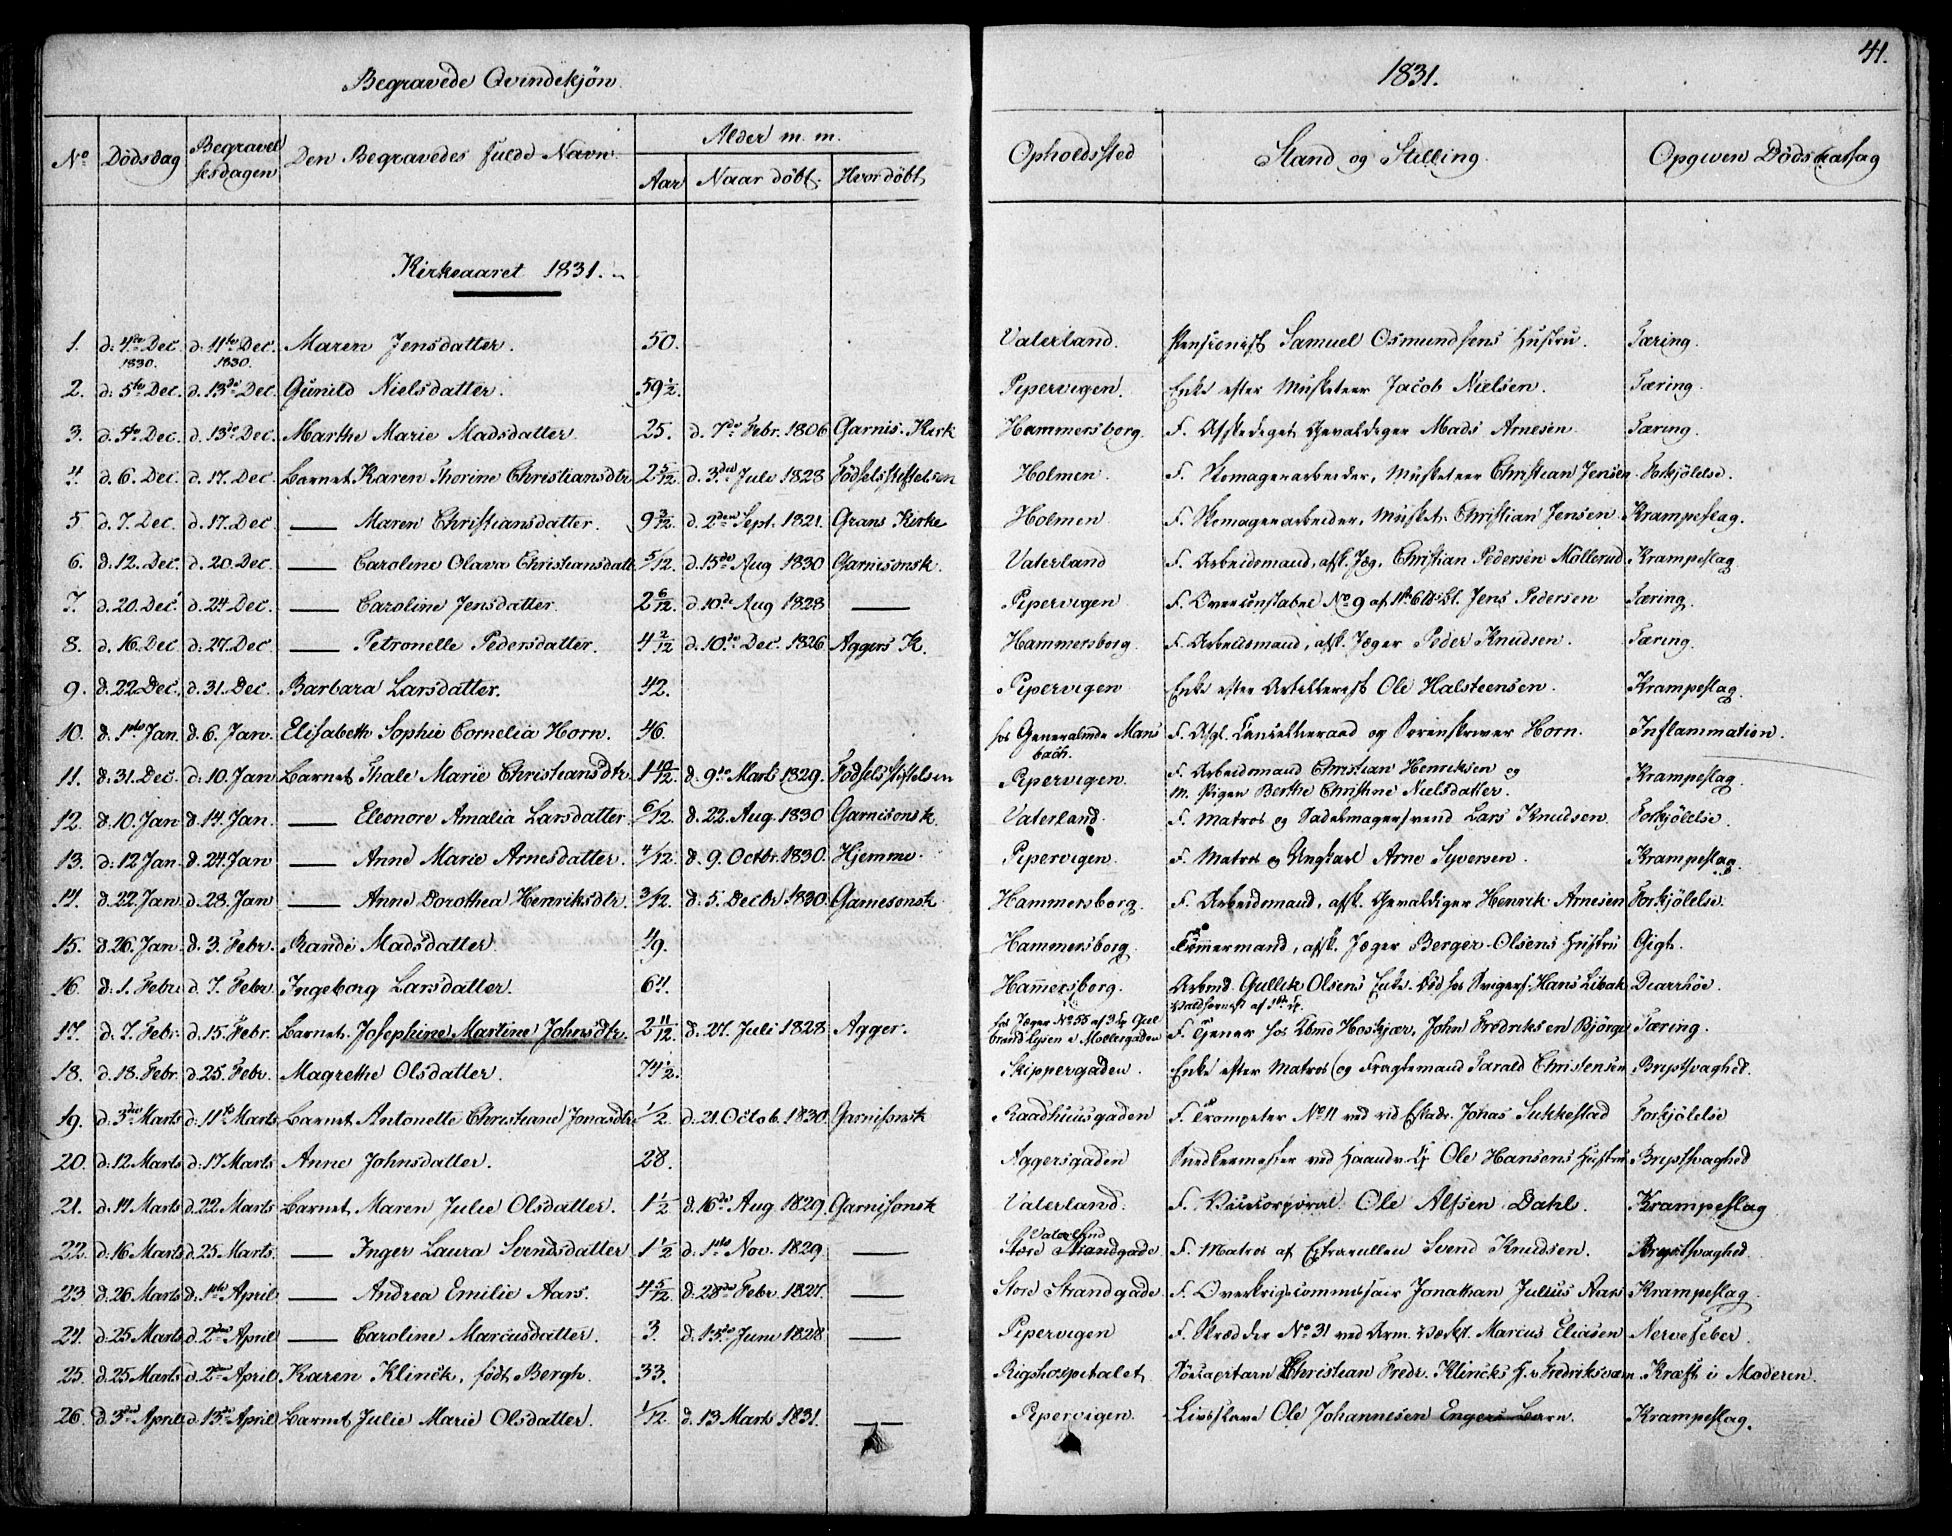 41.
Begravede Qvindekjøn. 1831.
No Dødsdag Begravelsesdagen Den Begravedes fulde Navn. Alder m. m. Aar Naar døbt. Hvor døbt Opholdssted Stand og Stilling. Opgiven Dødsaarsag
Kirkeaaret 1831.
1. d. 4de Dec. 1830. d. 11te Dec. 1830. Maren Jensdatter. 50. Vaterland. Pensionist Samuel Osmundsens Hustru. Tæring.
2. d. 5te Dec. d. 13de Dec. Gunild Nielsdatter. 59 1/2. Pipervigen. Enke efter Musketeer Jacob Nielsen. Tæring.
3. d. 5te Dec. d. 13de Dec. Marthe Marie Madsdatter. 25. d. 7de Febr. 1806 Garnis. Kirk Hammersborg. F. Afskediget Gevaldiger Mads Arnesen. Tæring.
4 d. 6. Dec. d. 17. Dec. Barnet Karen Thorine Christiansdtr 2 5/12. d. 3die Juli 1828 Fødselsstiftelsen Holmen. F. Skomagerarbeider, Musketeer Christian Jensen Forkjølelse.
5. d. 7. Dec. d. 17. Dec — Maren Christiansdatter. 9 3/12. d. 2den Sept. 1821. Grans Kirke Holmen F. Skomagerarbeider, Musket. Christian Jensen Krampeslag.
6. d. 12. Dec. d. 20. Dec — Caroline Olava Christiansdatt 5/12. d. 15de Aug 1830 Garnisonsk. Vaterland F. Arbeidsmand, afsk. Jæg. Christian Pedersen Møllerud Krampeslag
7. d. 20. Dec. d. 24. Dec. — Caroline Jensdatter. 2 6/12. d. 10de Aug 1828 — Pipervigen F. Overconstabel No 9 af 1ste 6 lds Bt. Jens Pedersen Tæring.
8. d. 16. Dec d. 27. Dec — Petronelle Pedersdatter. 4 2/12 d. 10de Dec. 1826 Aggers K. Hammersborg. F. Arbeidsmand, afsk. Jæger Peder Knudsen. Tæring.
9. d. 22. Dec. d. 31. Dec. Barbara Larsdatter. 42. Pipervigen Enke efter Artillerist Ole Halsteensen. Krampeslag.
10. d. 1ste Jan. d. 6. Jan. Elisabeth Sophie Cornelia Horn. 46. hos Generalinde Mansbach. F. Afgl. Cancelliraad og Sorenskriver Horn. Inflammation.
11. d. 31. Dec. d. 10. Jan Barnet Thale Marie Christiansdtr. 1 10/12. d. 9de Marts 1829. Fødselsstiftelsen Pipervigen. F. Arbeidsmand Christian Henriksen og M. Pigen Berthe Christine Nielsdatter. Krampeslag.
12. d. 10. Jan d. 14. Jan. — Eleonore Amalia Larsdatter. 6/12. d. 22. Aug. 1830 Garnisonsk. Vaterland. F. Matros og Sadelmagersvend Lars Knudsen. Forkjølelse.
13. d. 12 Jan d. 24. Jan — Anne Marie Arnesdatter. 4/12. d. 9. Octbr. 1830. Hjemme. Pipervigen. F. Matros og Ungkarl Arne Syversen. Krampeslag.
14. d. 22 Jan d. 28. Jan — Anne Dorothea Henriksdtr. 3/12. d. 5. Decbr 1830. Garnisonsk Hammersborg. F. Arbeidsmand, afsk. Gevaldiger Henrik Arnesen Forkjølelse.
15. d. 26. Jan. d. 3. Febr. Randi Madsdatter. 49. Hammersborg. Tømmermand, afsk. Jæger Berger Olsens Hustru Gigt.
16. d. 1. Febr. d. 7. Febr. Ingeborg Larsdatter. 64. Hammersborg. Arbmd. Gullik Olsens Enke. Død hos Svigers. Hans Libak Valdhornist af 1ste Cp. Diarrhøe.
17. d. 7. Febr. d. 15. Febr. Barnet Josephine Martine Johnsdtr. 2 11/12. d. 27. Juli 1828 Agger. hos Jæger No 55 af 3 Cp Gulbrand Lysen i Møllergaden F. Tjener hos Kbmd Hoskjær, John Fredriksen Bjørge Tæring.
18. d. 18. Febr. d. 25. Febr. Magrethe Olsdatter. 74 1/2. Skippergaden. Enke efter Matros (og Fragtemand Tarald Christensen Brystsvaghed.
19. d. 3die Marts d. 11te Marts Barnet Antonette Christiane Jonasdtr 1/2. d. 21. Octob. 1830. Garnisonsk Raadhuusgaden F. Trompeter No 11 ved rid Escadr. Jonas Sukkestad Forkjølelse
20. d. 12 Marts d. 17 Marts Anne Johnsdatter. 28. Aggersgaden Snedkermester ved Haandv. Cp Ole Hansens Hustru Brystsvaghed
21. d. 14 Marts d. 22 Marts Barnet Maren Julie Olsdatter. 1 1/2 d. 16de Aug 1829. Garnisonsk Vaterland. F. Vicecorporal Ole Alfsen Dahl. Krampeslag
22. d. 16 Marts d. 25 Marts. — Inger Laura Svendsdatter 1 1/2 d. 1ste Nov. 1829. — Vaterland Store Strandgade F. Matros af Extrarullen Svend Knudsen. Brystsvaghed.
23 d. 26 Marts d. 1ste April — Andrea Emilie Aars. 4 5/12 d. 28de Febr 1827. — Store Strandgade. F. Overkrigscommissair Jonathan Julius Aars Krampeslag.
24. d. 25 Marts d. 2den April — Caroline Marcusdatter. 3. d. 15de Juni 1828. — Pipervigen F. Skrædder No 31 ved Arm. Værkst. Marcus Eliasen Nervefeber.
25. d. 25 Marts d. 2den April Karen Klinck, født Bergh. 33. Rigshospitalet. Søecapitain Christian Fredr. Klincks H. v. Fredriksværn. Kræft i Moderen.
26. d. 3die April d. 13de April Barnet Julie Marie Olsdatter. 1/12. d. 13 Marts 1831. — Pipervigen. Livsslave Ole Johannesen Engers Barn. Krampeslag.